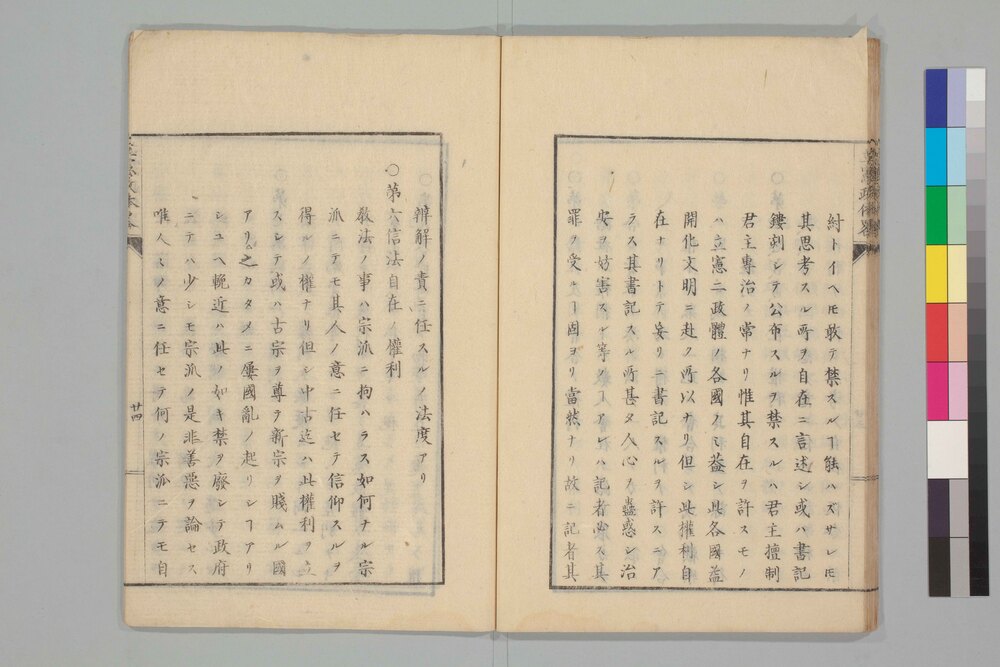 紂トイヘ𪜈敢テ禁スルヿ能ハズサレ𪜈
其思考スル所ヲ自在ニ言述シ或ハ書記
鏤刻シテ公布スルヲ禁スルハ君主擅制
君主專治ノ常ナリ惟其自在ヲ許スモノ
ハ立憲二政體ノ各國ノミ蓋シ此各國益
開化文明ニ赴ク所以ナリ但シ此權利自
在ナリトテ妄リニ書記スルヲ許スニア
ラス其書記スル所甚タ人心ノ蠱惑シ治
安ヲ妨害スル等ノヿアレハ記者必ス其
罪ヲ受ルヿ固ヨリ當然ナリ故ニ記者其
辨解ノ責ニ任スルノ法度アリ
○第六信法自在ノ權利
敎法ノ事ハ宗派ニ拘ハラス如何ナル宗
派ニテモ其人ノ意ニ任セテ信仰スルヲ
得ルノ權ナリ但シ中古迄ハ此權利ヲ立
スシテ或ハ古宗ヲ尊テ新宗ヲ賤ムルノ國
アリ之カタメニ屢國亂ノ起リシヿアリ
シユヘ輓近ハ此ノ如キ禁ヲ廢シテ政府
ニテハ少シモ宗派ノ是非善惡ヲ論セス
唯人々ノ意ニ任セテ何ノ宗派ニテモ自
廿四